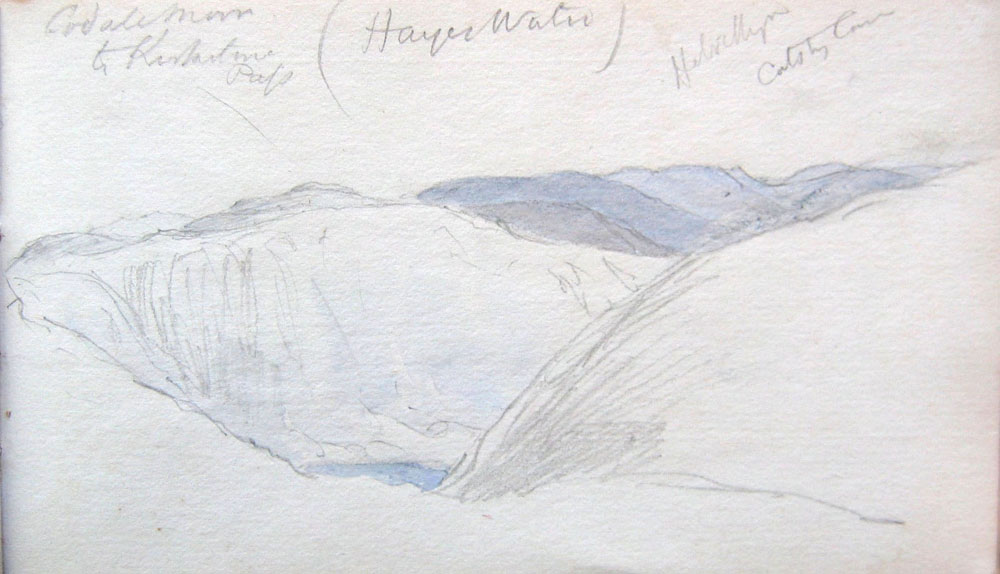 Codale Moor
to Kirkstone
Pass
(Hayes Water)
Helvellyn
Catsty Cam